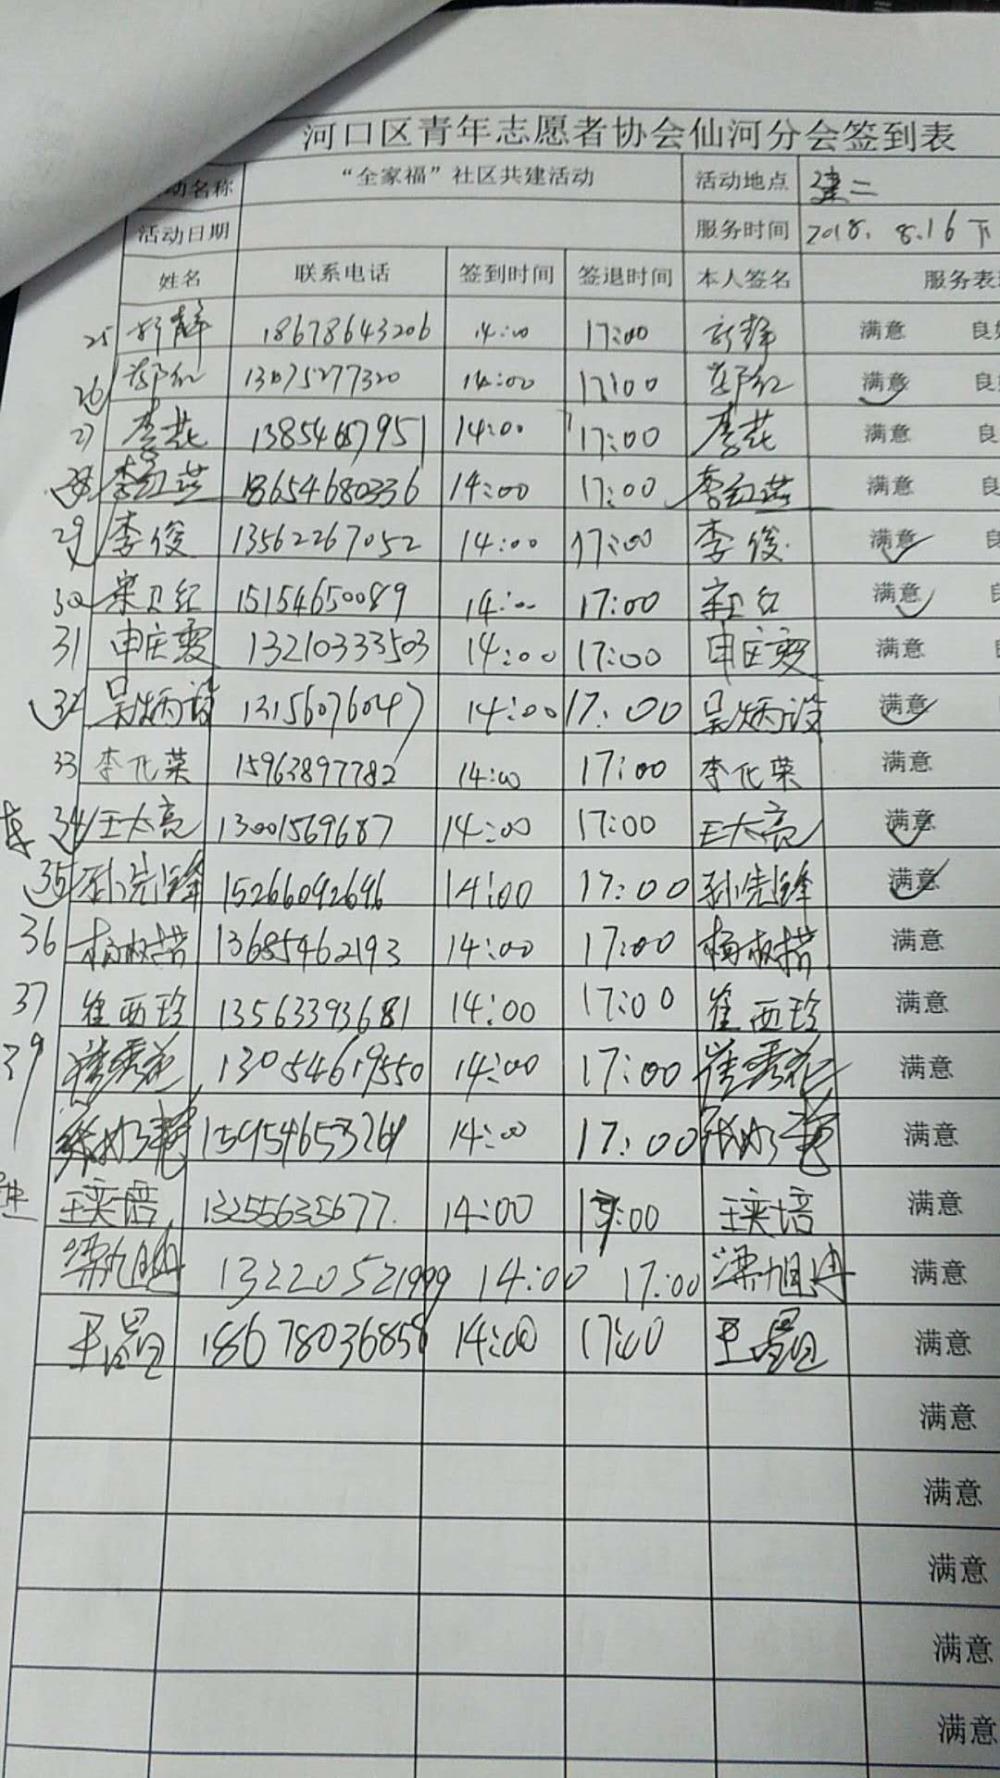 河口区青年志愿者协会仙河分会签到表
动名称 “全家福”社区共建活动 活动地点 建二
活动日期 服务时间 2018. 8.16 下
姓名 联系电话 签到时间 签退时间 本人签名 服务表
25 静 18678643206 14:00 17:00 静 满意 良
26 郭红 13075277320 14:00 17:00 郭红 满意 良
27 李花 13854687951 14:00 17:00 李花 满意 良
28 李红燕 18654680336 14:00 17:00 李红燕 满意 良
29 李俊 13562267052 14:00 17:00 李俊 满意 良
30 宋卫红 15154650089 14:00 17:00 宋卫红 满意
31 申庆雯 13210333503 14:00 17:00 申庆雯 满意
32 吴炳 13156076047 14:00 17:00 吴炳 满意
33 李化荣 15963897782 14:00 17:00 李化荣 满意
34 王大亮 13001569687 14:00 17:00 王大亮 满意
35 孙先锋 15266092696 14:00 17:00 孙先锋 满意
36 杨 13685462193 14:00 17:00 杨 满意
37 崔西珍 13563393681 14:00 17:00 崔西珍 满意
39 崔秀花 13054619550 14:00 17:00 崔秀花 满意
14:00 17:00 满意
王奕培 13255635677 14:00 17:00 王奕培 满意
梁旭冉 13220521999 14:00 17:00 梁旭冉 满意
王 18678036858 14:00 17:00 王 满意
满意
满意
满意
满意
满意